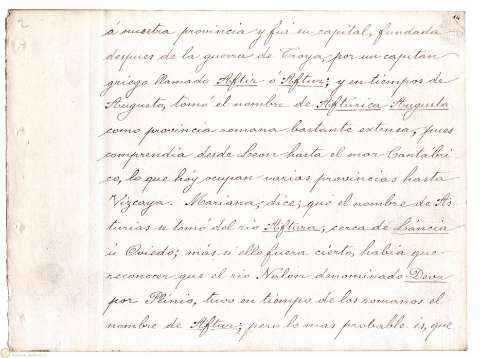 á nuestra provincia y fué su capital, fundada
despues de la guerra de Troya, por un capitan
griego llamado Aftir o Aftur; y en tiempos de
Augusto, tomó el nombre de Aftúrica Augusta
como provincia romana bastante extensa, pues
comprendia desde Leon hasta el mar Cantábri
co, lo que hóy ocupan varias provincias hasta
Vizcaya. Mariana, dice; qué el nombre de As
turias se tomó del rio Aftura; cerca de Láncia
ú Oviedo; más si ello fuera cierto, habia que
reconocer que el rio Nalon denominado Deva
por Plinio, tuvo en tiempo de los romanos el
nombre de Aftur; pero lo mas probable és, que